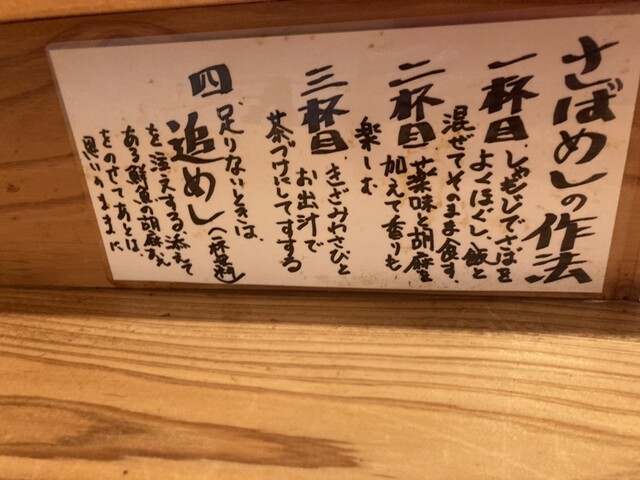 さばめしの作法
一杯目 しゃもじでさばを
よくほぐし、飯と
混ぜてそのまま食す。
二杯目 薬味と胡麻を
加えて香りも
楽しむ
三杯目 きざみわさびと
お出汁で
茶づけにしてすする
四 足りないときは、
追めし(一杯無料)
を注文する。添えて
ある鮮魚の胡麻あえ
をのせてあとは、
思いのままに